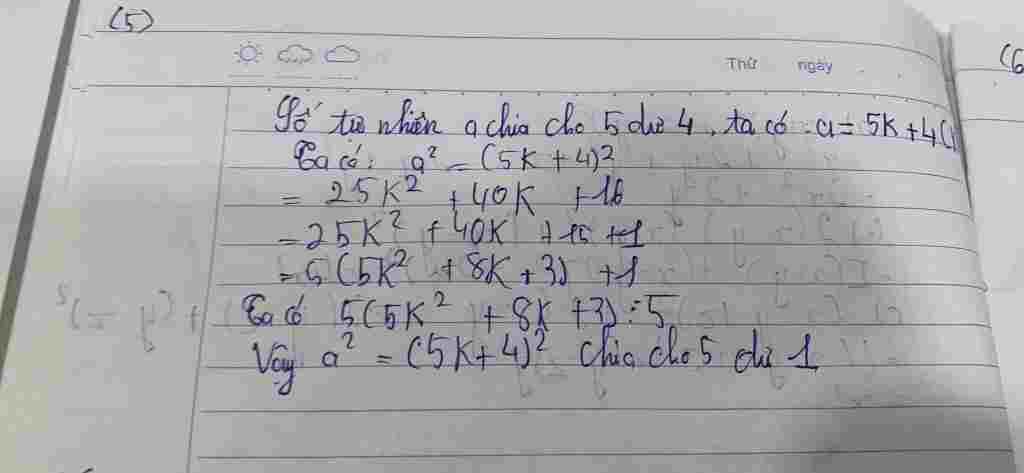 (5)
(6
Thứ ngày
Số tự nhiên a chia cho 5 dư 4, ta có a = 5K + 4 (
Ta có: a² = (5K + 4)²
= 25K² + 40K + 16
= 25K² + 40K + 15 + 1
= 5(5K² + 8K + 3) + 1
Ta có 5(5K² + 8K + 3) ⋮ 5
Vậy a² = (5K + 4)² chia cho 5 dư 1